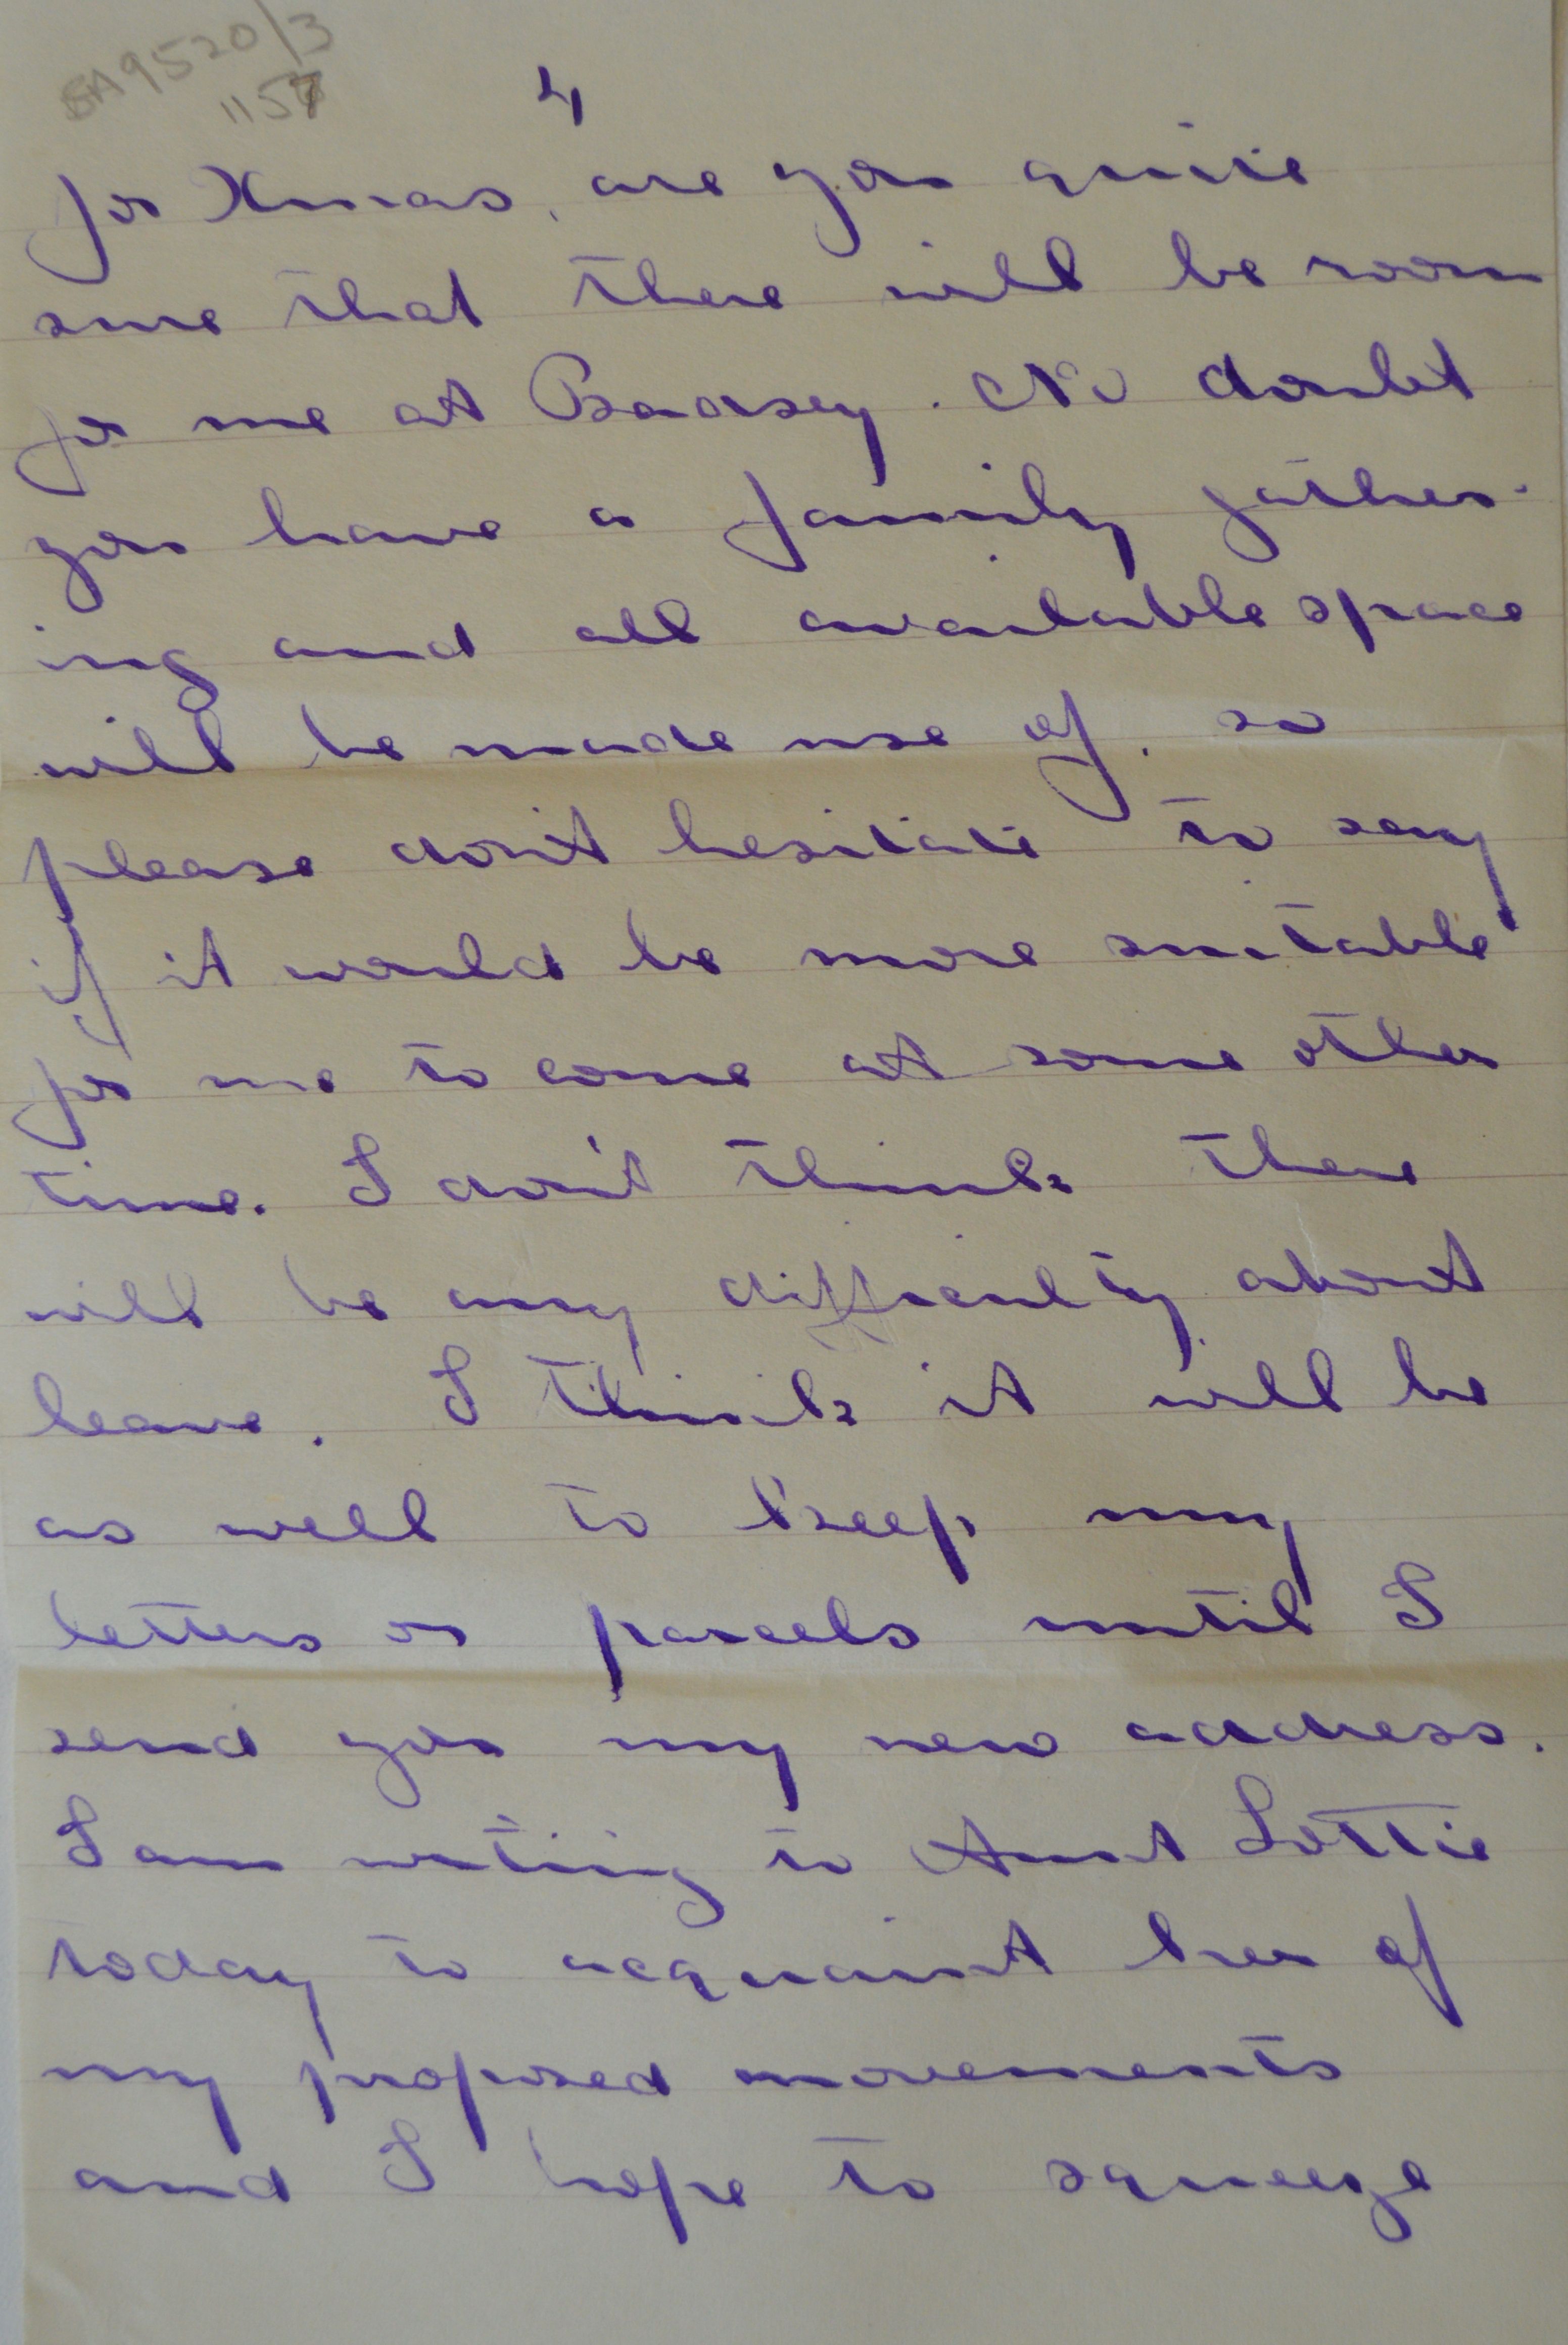 BA9520/3
1157
4
for Xmas, are you quite
sure that there will be room
for me at Badsey. No doubt
you have a family gather-
ing and all available space
will be made use of. so
please don't hesitate to say
if it would be more suitable
for me to come at some other
time. I don't think there
will be any difficulty about
leave. I think it will be
as well to keep my
letters or parcels until I
send you my new address.
I am writing to Aunt Lottie
today to acquaint her of
my proposed movements
and I hope to squeeze